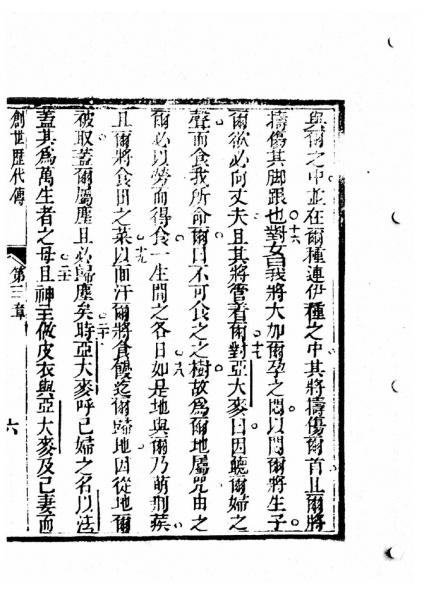 與爾之中並在爾種連伊種之中其將擣傷爾首且爾將
擣傷其脚跟也十六對女曰我將大加爾孕之悶以悶爾將生子
爾欲必向丈夫且其將管着爾十七對亞大麥曰因聽爾婦之
聲而食我所命爾曰不可食之之樹故爲爾地屬咒由之
爾必以勞而得食一生間之各日如是十八地與爾乃萌荆蒺
且爾將食田之菜十九以面汗爾將食饅迄爾歸地因從地爾
被取蓋爾屬塵且必歸塵矣二十時亞大麥呼己婦之名以法
蓋其爲萬生者之母二一且神主做皮衣與亞大麥及己妻而
創世歷代傳 第三章 六